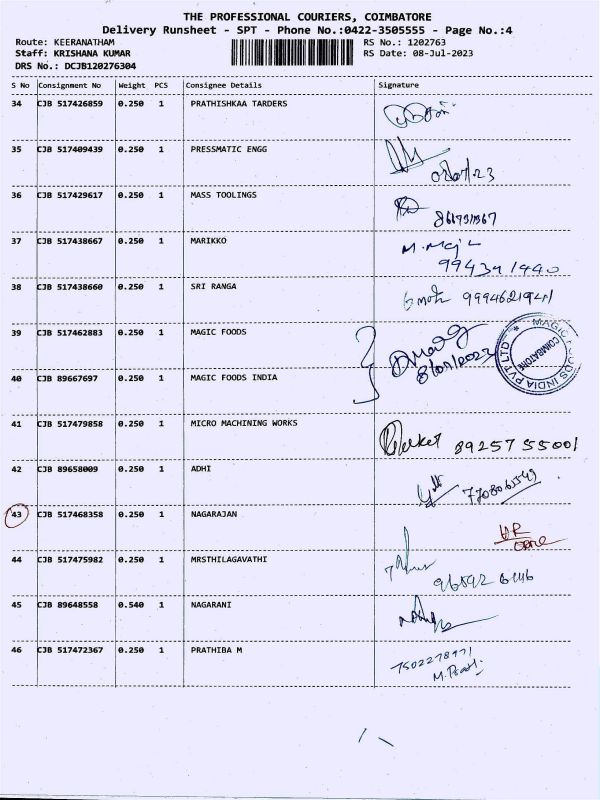 THE PROFESSIONAL COURIERS, COIMBATORE
Delivery Runsheet - SPT - Phone No.:0422-3505555 - Page No.:4
Route: KEERANATHAM RS No.: 1202763
Staff: KRISHANA KUMAR RS Date: 08-Jul-2023
DRS No.: DCJB120276304
S No Consignment No Weight PCS Consignee Details Signature
34 CJB 517426859 0.250 1 PRATHISHKAA TARDERS
35 CJB 517409439 0.250 1 PRESSMATIC ENGG
36 CJB 517429617 0.250 1 MASS TOOLINGS
37 CJB 517438667 0.250 1 MARIKKO
9943911440
38 CJB 517438660 0.250 1 SRI RANGA
39 CJB 517462883 0.250 1 MAGIC FOODS
8/07/2023
MAGIC FOODS INDIA PVT LTD
COIMBATORE
40 CJB 89667697 0.250 1 MAGIC FOODS INDIA
41 CJB 517479858 0.250 1 MICRO MACHINING WORKS
89257 55001
42 CJB 89658009 0.250 1 ADHI
43 CJB 517468358 0.250 1 NAGARAJAN
44 CJB 517475982 0.250 1 MRSTHILAGAVATHI
45 CJB 89648558 0.540 1 NAGARANI
46 CJB 517472367 0.250 1 PRATHIBA M